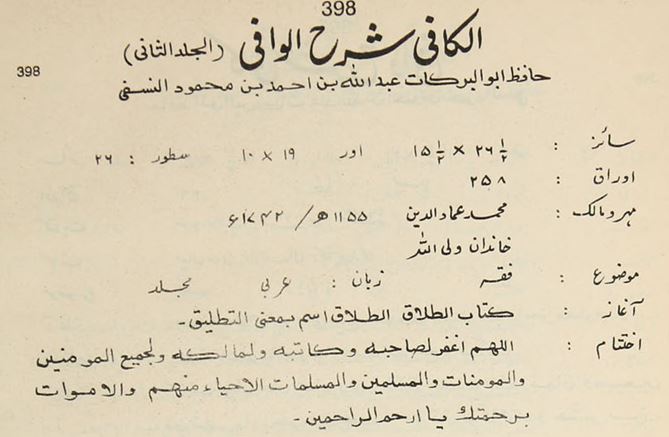 398
الکافی شرح الوافی (الجلد الثانی)
398
حافظ ابوالبرکات عبداللہ بن احمد بن محمود النسفی
سائز : ۲۶½ × ۱۵½ اور ۱۹ × ۱۰ سطور : ۲۶
اوراق : ۲۵۸
مہر و مالک : محمد عماد الدین ۱۱۵۵ھ / ۱۷۴۲ء
خاندان ولی اللہ
موضوع : فقہ زبان : عربی مجلد
آغاز : کتاب الطلاق الطلاق اسم بمعنی التطلیق۔
اختتام : اللهم اغفر لصاحبه وکاتبه ولمالکه ولجمیع المومنین
والمومنات والمسلمین والمسلمات الاحیاء منهم والاموات
برحمتك یا ارحم الراحمین۔